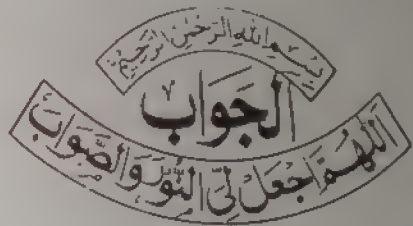 بِسْمِ اللهِ الرَّحْمٰنِ الرَّحِيْمِ
الجواب
اَللّٰهُمَّ اجْعَلْ لِيَ النُّوْرَ وَالصَّوَابَ